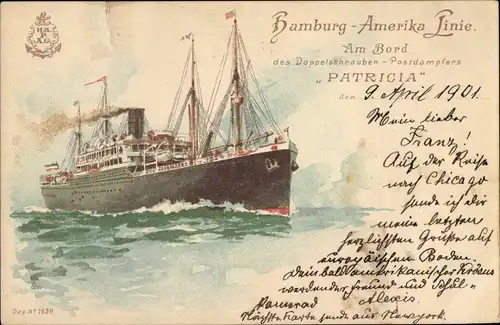 HAPAG
Hamburg-Amerika Linie.
Am Bord
des Doppelschrauben-Postdampfers
„PATRICIA"
den 9. April 1901.
Mein lieber
Franz!
Auf der Reise
nach Chicago
sende ich dir
meine letzten
herzlichsten Grüße auf
europäischen Boden.
Dein bald amerikanischer
werdender Freund und Schul-
kamerad Alexis.
Nächste Karte sende aus Newyork.
Dep. No 1639